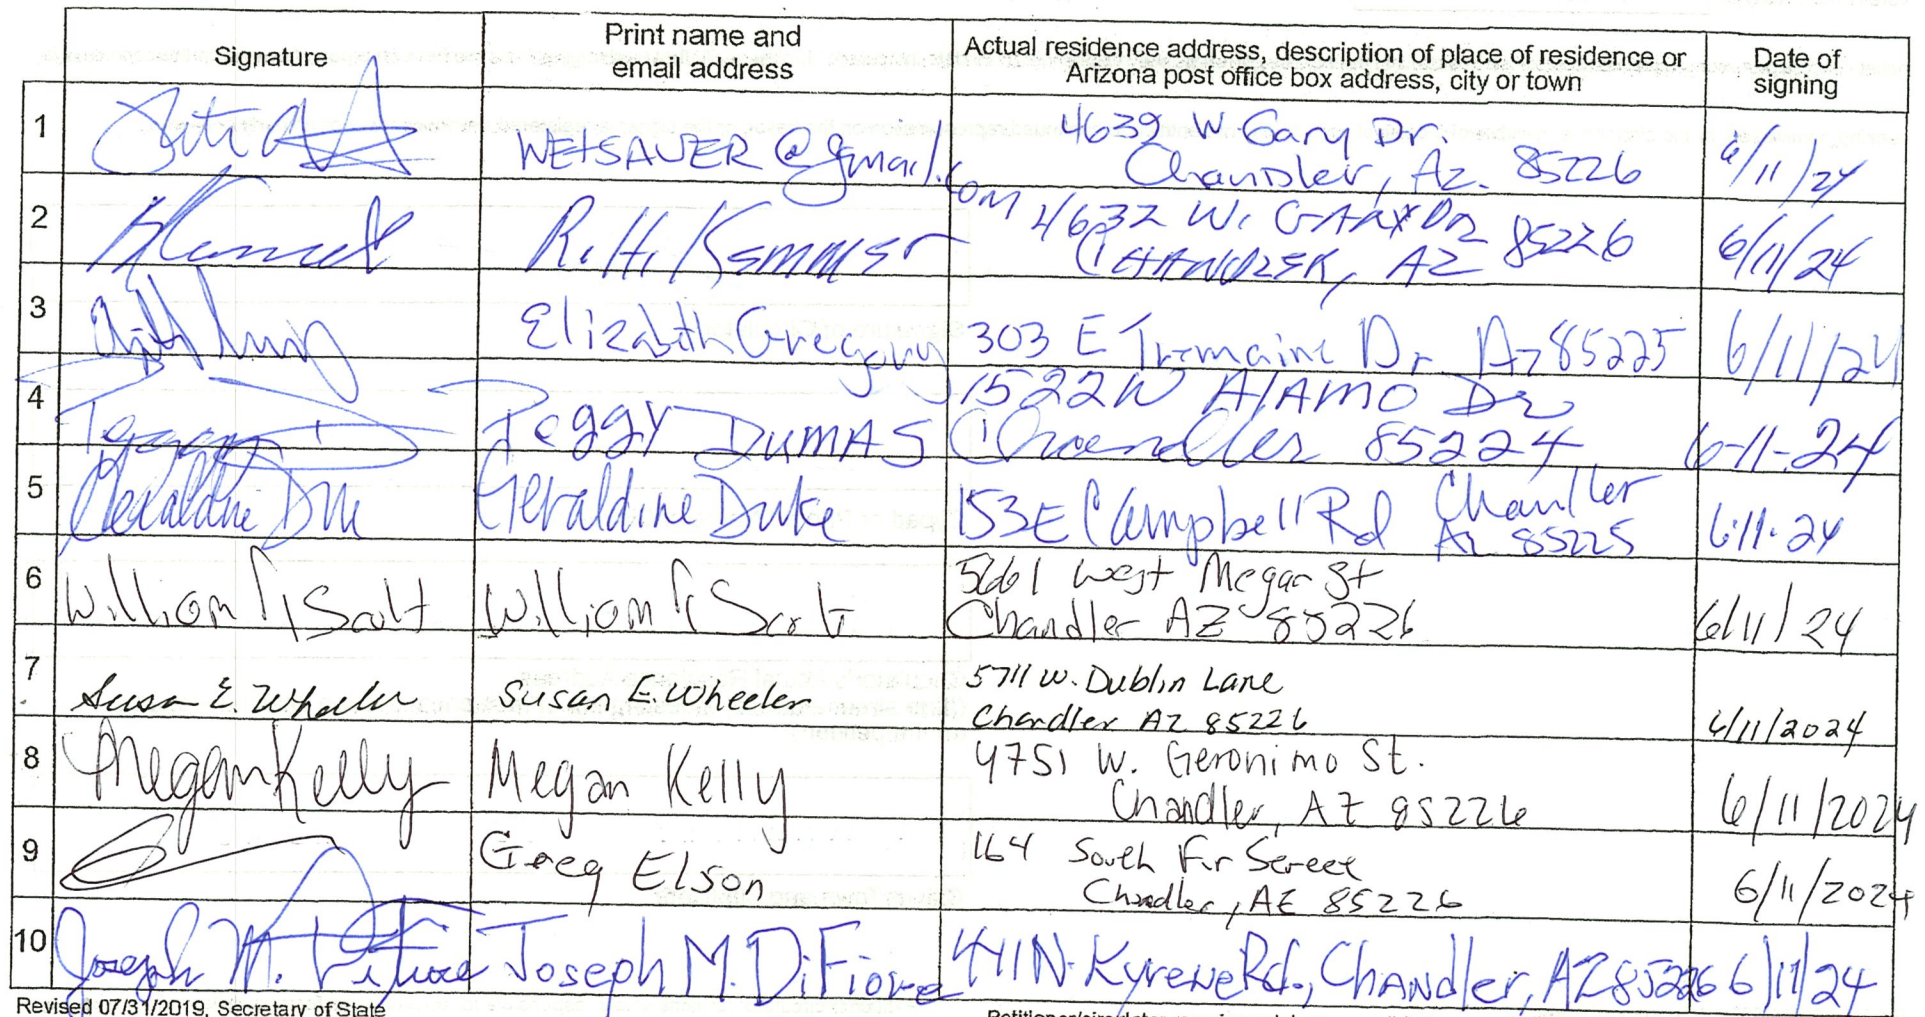 Signature
Print name and
email address
Actual residence address, description of place of residence or
Arizona post office box address, city or town
Date of
signing
1
WEISAUER@gmail.com
4639 W Gary Dr.
Chandler, Az. 85226
6/11/24
2
R.H. Kemmer
4632 W. GARY DR
CHANDLER, AZ 85226
6/11/24
3
Elizabeth Gregory
303 E Tremaine Dr Az 85225
6/11/24
4
Peggy DUMAS
1522 W AlAMO Dr
Chandler 85224
6-11-24
5
Geraldine Duke
153 E Campbell Rd Chandler
Az 85225
6.11.24
6
William Scott
William Scott
5661 west Megan St
Chandler AZ 85226
6/11/24
7
Susan E. Wheeler
Susan E. Wheeler
5711 W. Dublin Lane
Chandler AZ 85226
6/11/2024
8
Megan Kelly
Megan Kelly
4751 W. Geronimo St.
Chandler, AZ 85226
6/11/2024
9
Greg Elson
164 South Fir Street
Chandler, AZ 85226
6/11/2024
10
Joseph M. DiFiore
Joseph M. DiFiore
441 N. Kyrene Rd., Chandler, AZ 85226
6/11/24
Revised 07/31/2019, Secretary of State